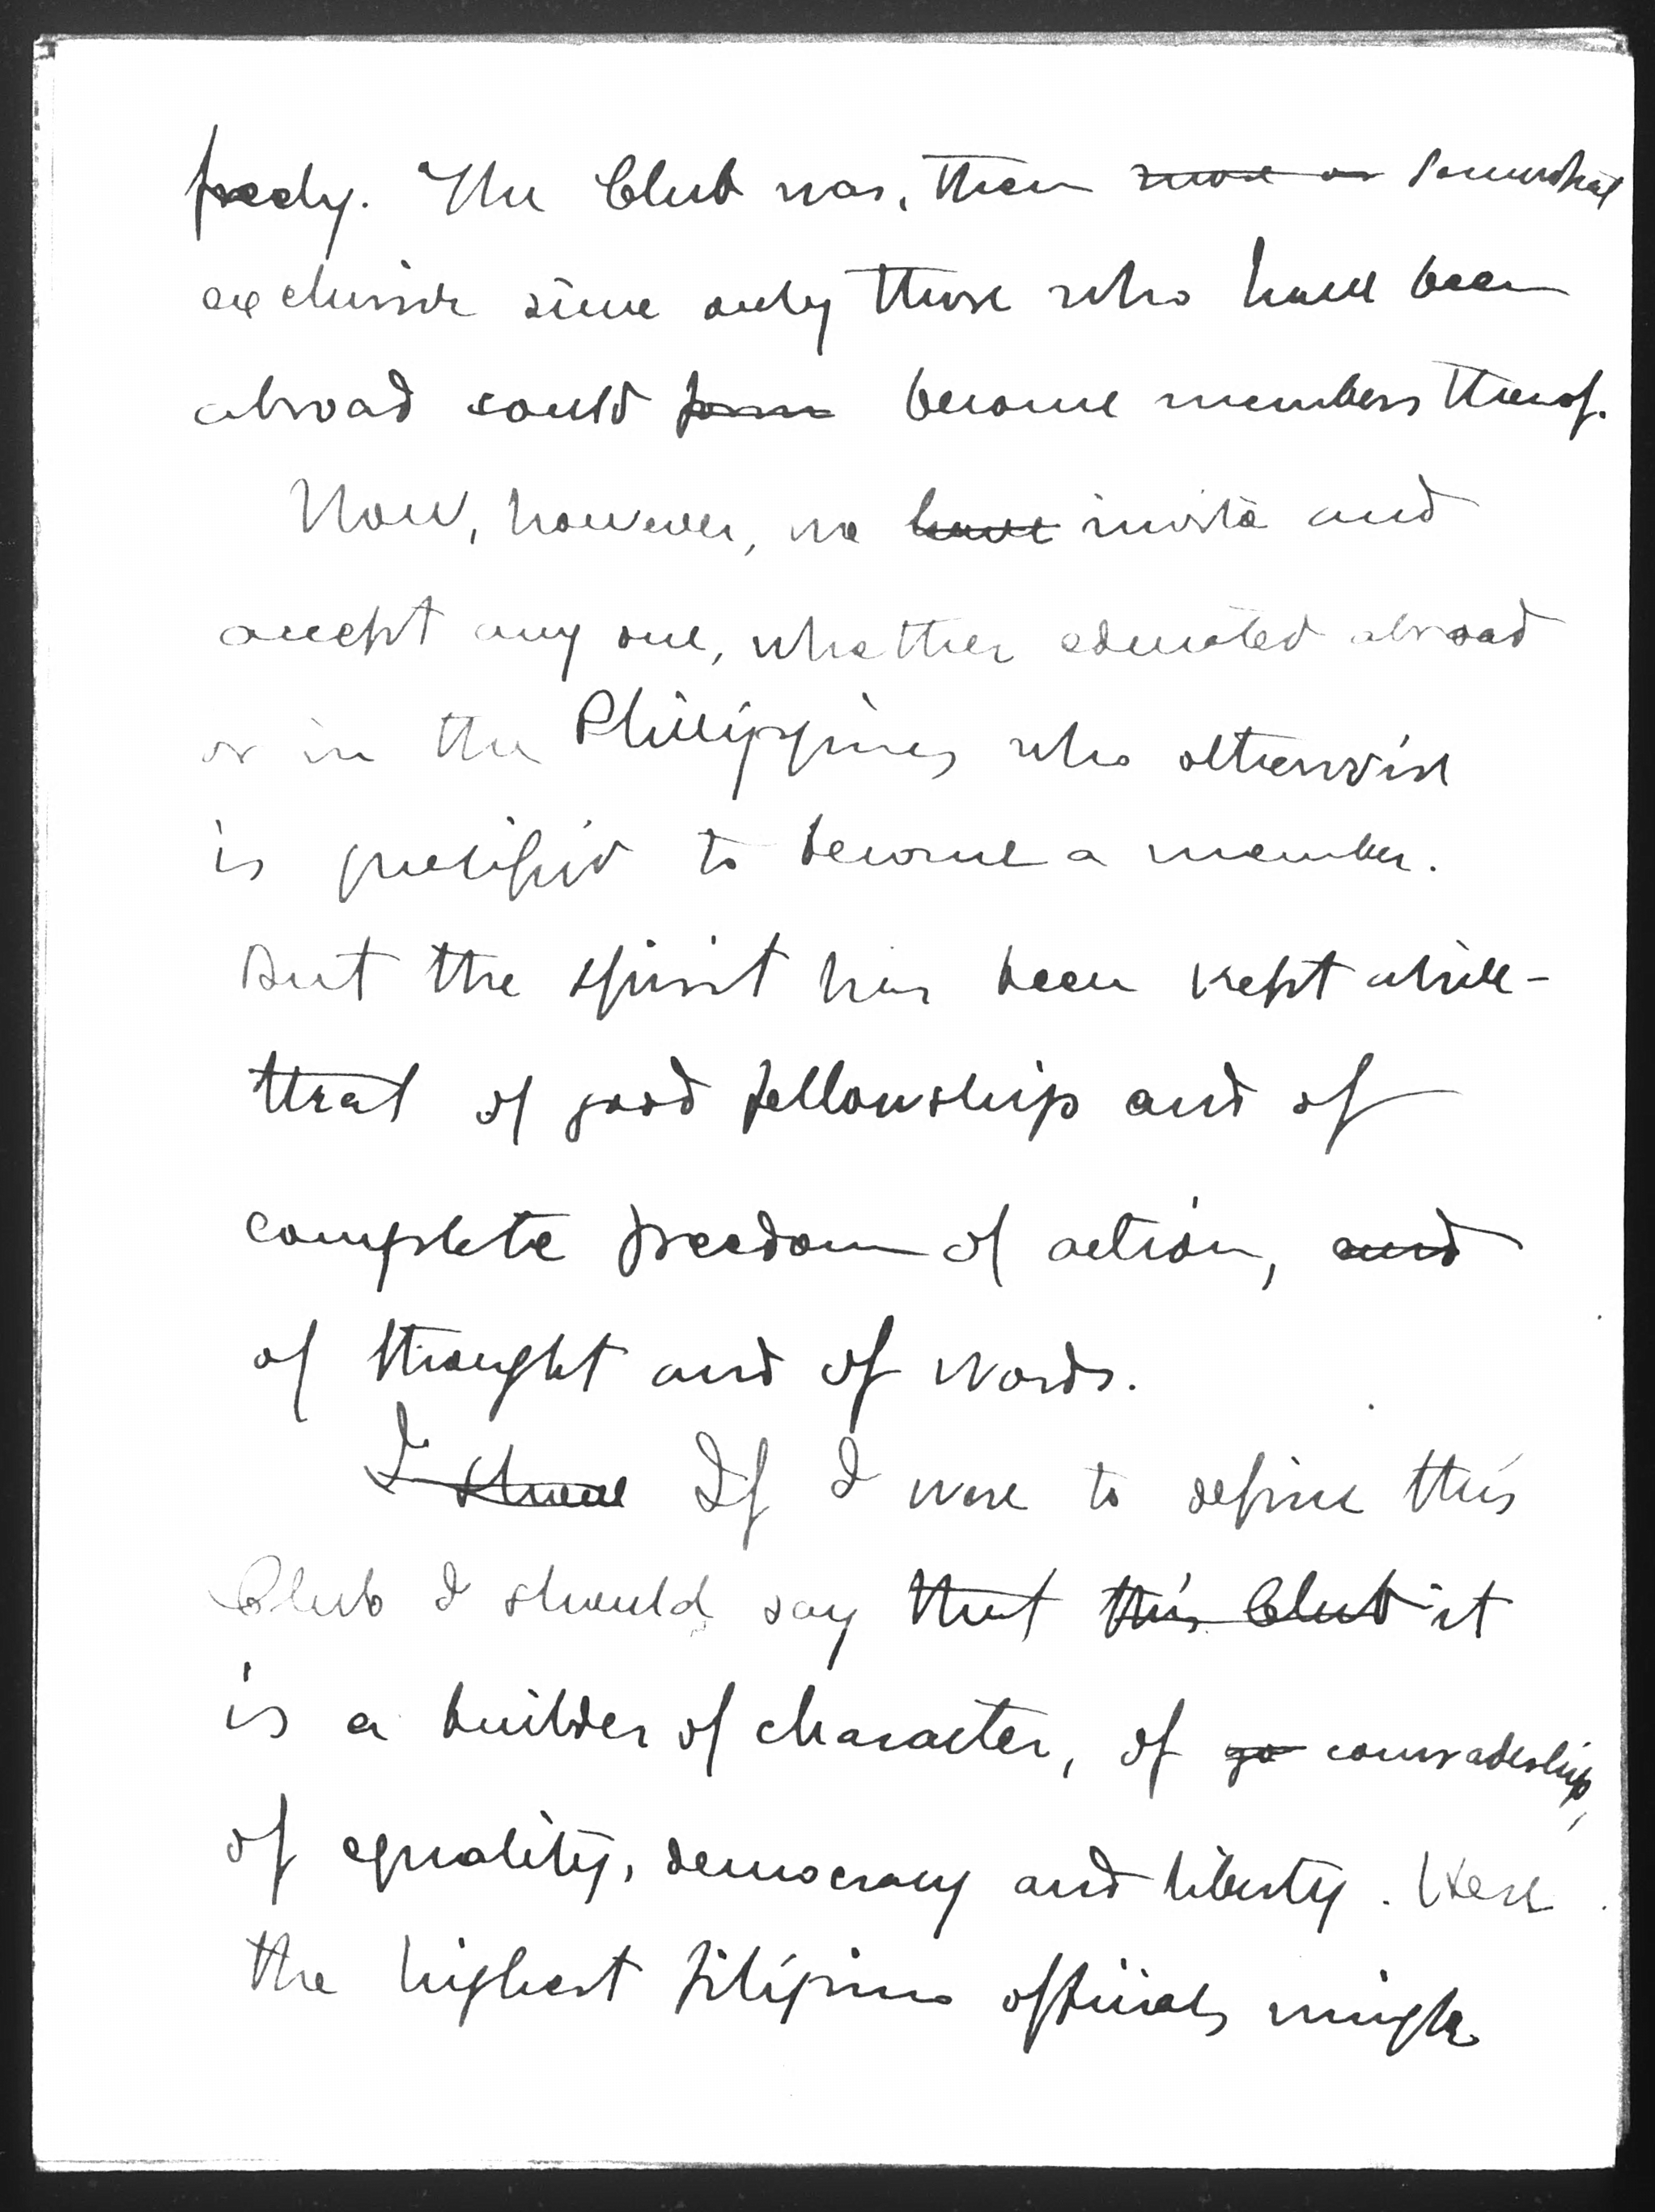 freely. The Club was, then ~~more or~~ somewhat
exclusive since only those who have been
abroad could ~~form~~ become members thereof.
Now, however, we ~~have~~ invite and
accept any one, whether educated abroad
or in the Philippines who otherwise
is qualified to become a member.
But the spirit has been kept alive -
that of good fellowship and of
complete freedom of action, ~~and~~
of thought and of words.
~~I~~ If I were to define this
Club I should say that ~~this Club~~ it
is a builder of character, of ~~go~~ comradeship,
of equality, democracy and liberty. Here
the highest Filipino officials mingle